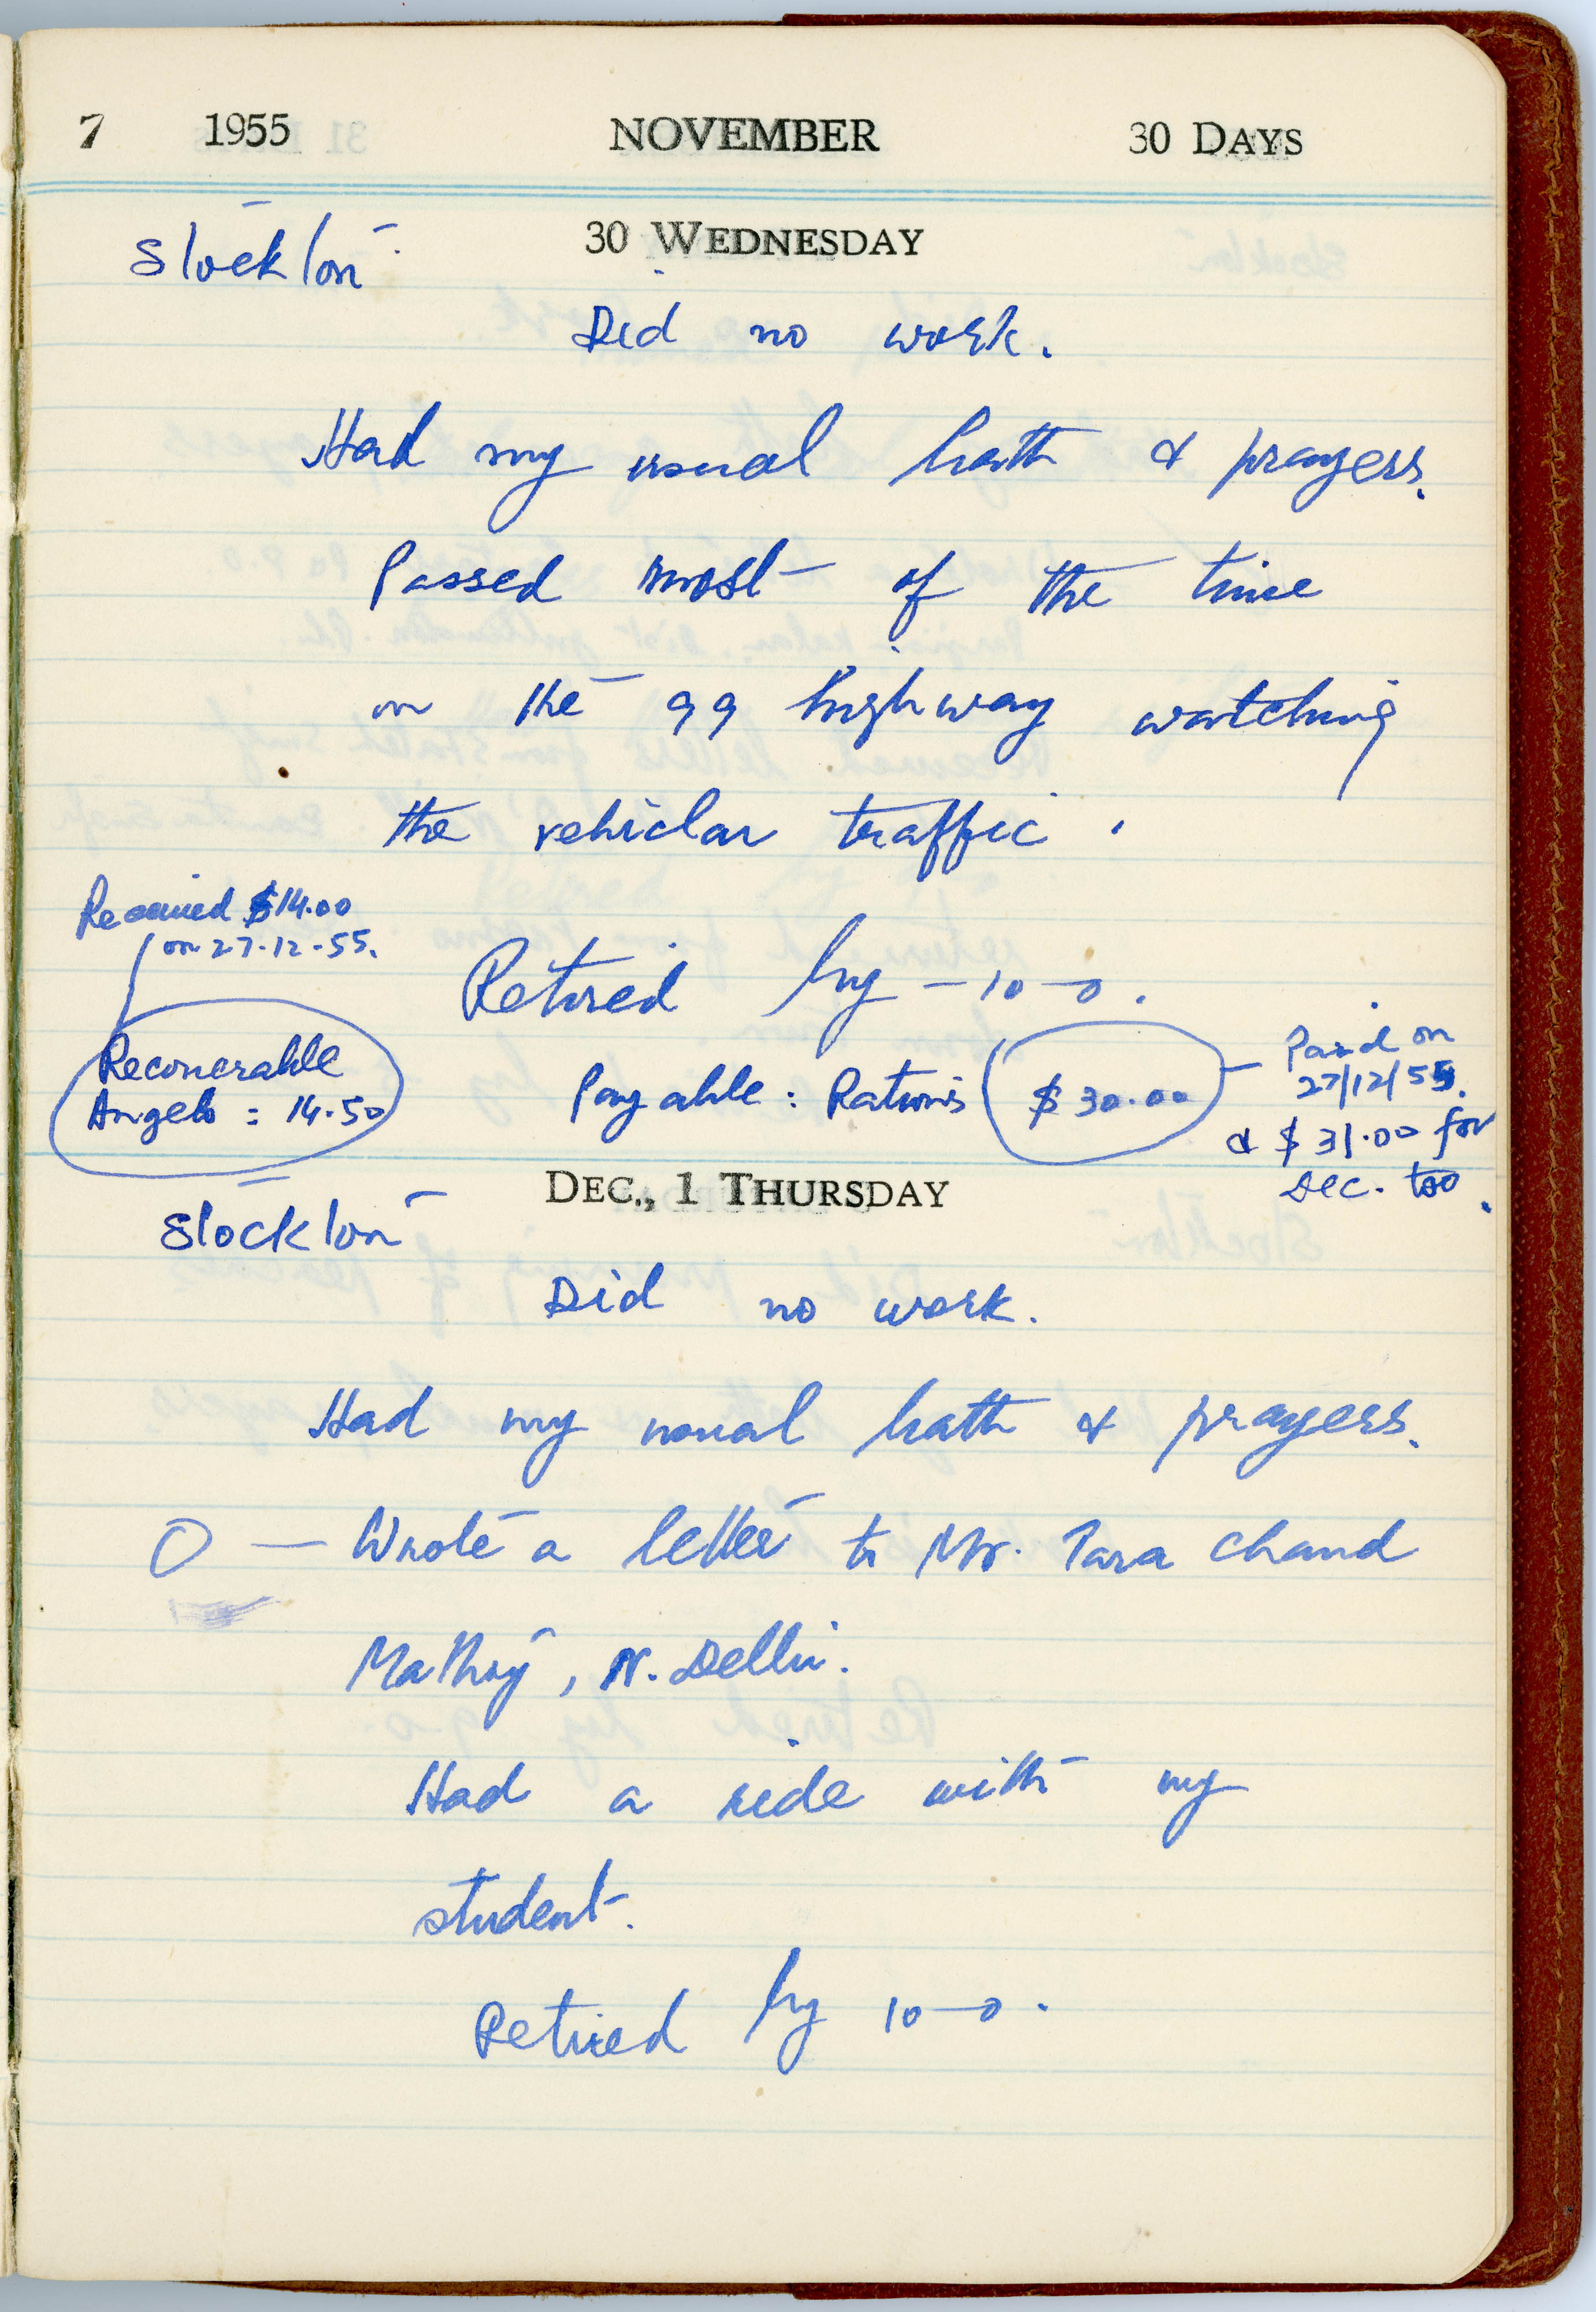 7 1955 NOVEMBER 30 DAYS
Stockton 30 WEDNESDAY
Did no work.
Had my usual bath & prayers.
Passed most of the time
on the 99 highway watching
the vehiclar traffic.
Received $14.00
on 27.12.55.
Retired by - 10-0.
Recoverable
Angelo : 14.50
Payable : Rations $30.00
Paid on
27/12/55.
& $31.00 for
Dec. too.
Stockton DEC., 1 THURSDAY
Did no work.
Had my usual bath & prayers.
O — Wrote a letter to Mr. Tara Chand
N. Delhi.
Had a ride with my
student.
Retired by 10-0.